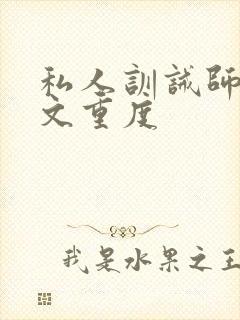 私人訓誡師
文重度
我是水果之王